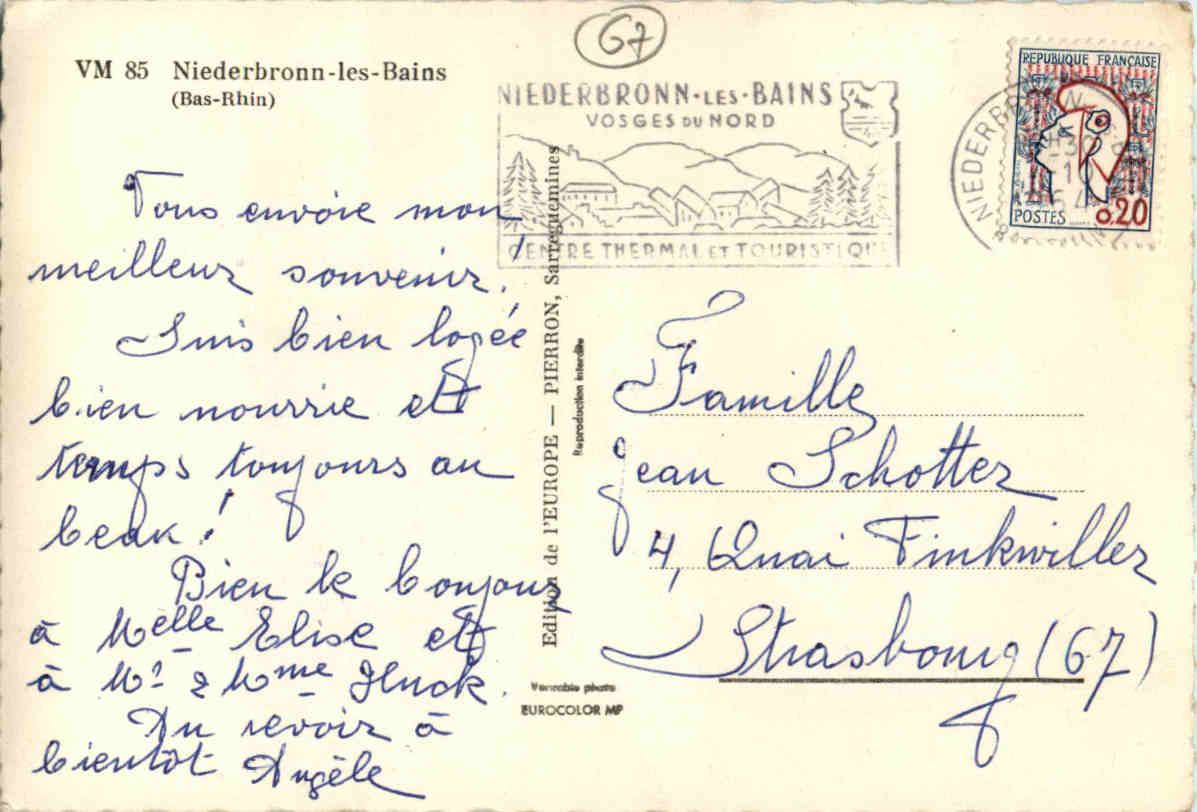 67
VM 85 Niederbronn-les-Bains
(Bas-Rhin)
NIEDERBRONN-LES-BAINS
VOSGES DU NORD
CENTRE THERMAL ET TOURISTIQUE
REPUBLIQUE FRANÇAISE
POSTES 0,20
Vous envoie mon
meilleur souvenir.
Suis bien logée
bien nourrie et
temps toujours au
beau !
Bien le bonjour
à Melle Elise et
à Mr & Mme Gluck.
Au revoir à
bientôt Angèle
Edition de l'EUROPE — PIERRON, Sarreguemines
Reproduction interdite
Véritable photo
EUROCOLOR MP
Famille
Jean Schotter
4, Quai Finkwiller
Strasbourg (67)